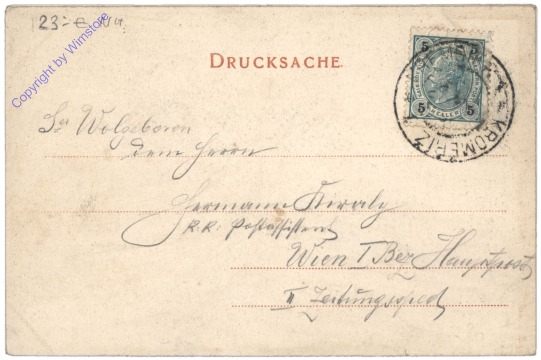 23.- 
Copyright by Wimstore
DRUCKSACHE.
5 5
5 5
KROMĚŘÍŽ
Sr Wolgeboren
dem Herrn
Hermann Kiraly
k.k. Postassistent
Wien I Bez Hauptpost
II Zeitungsexped